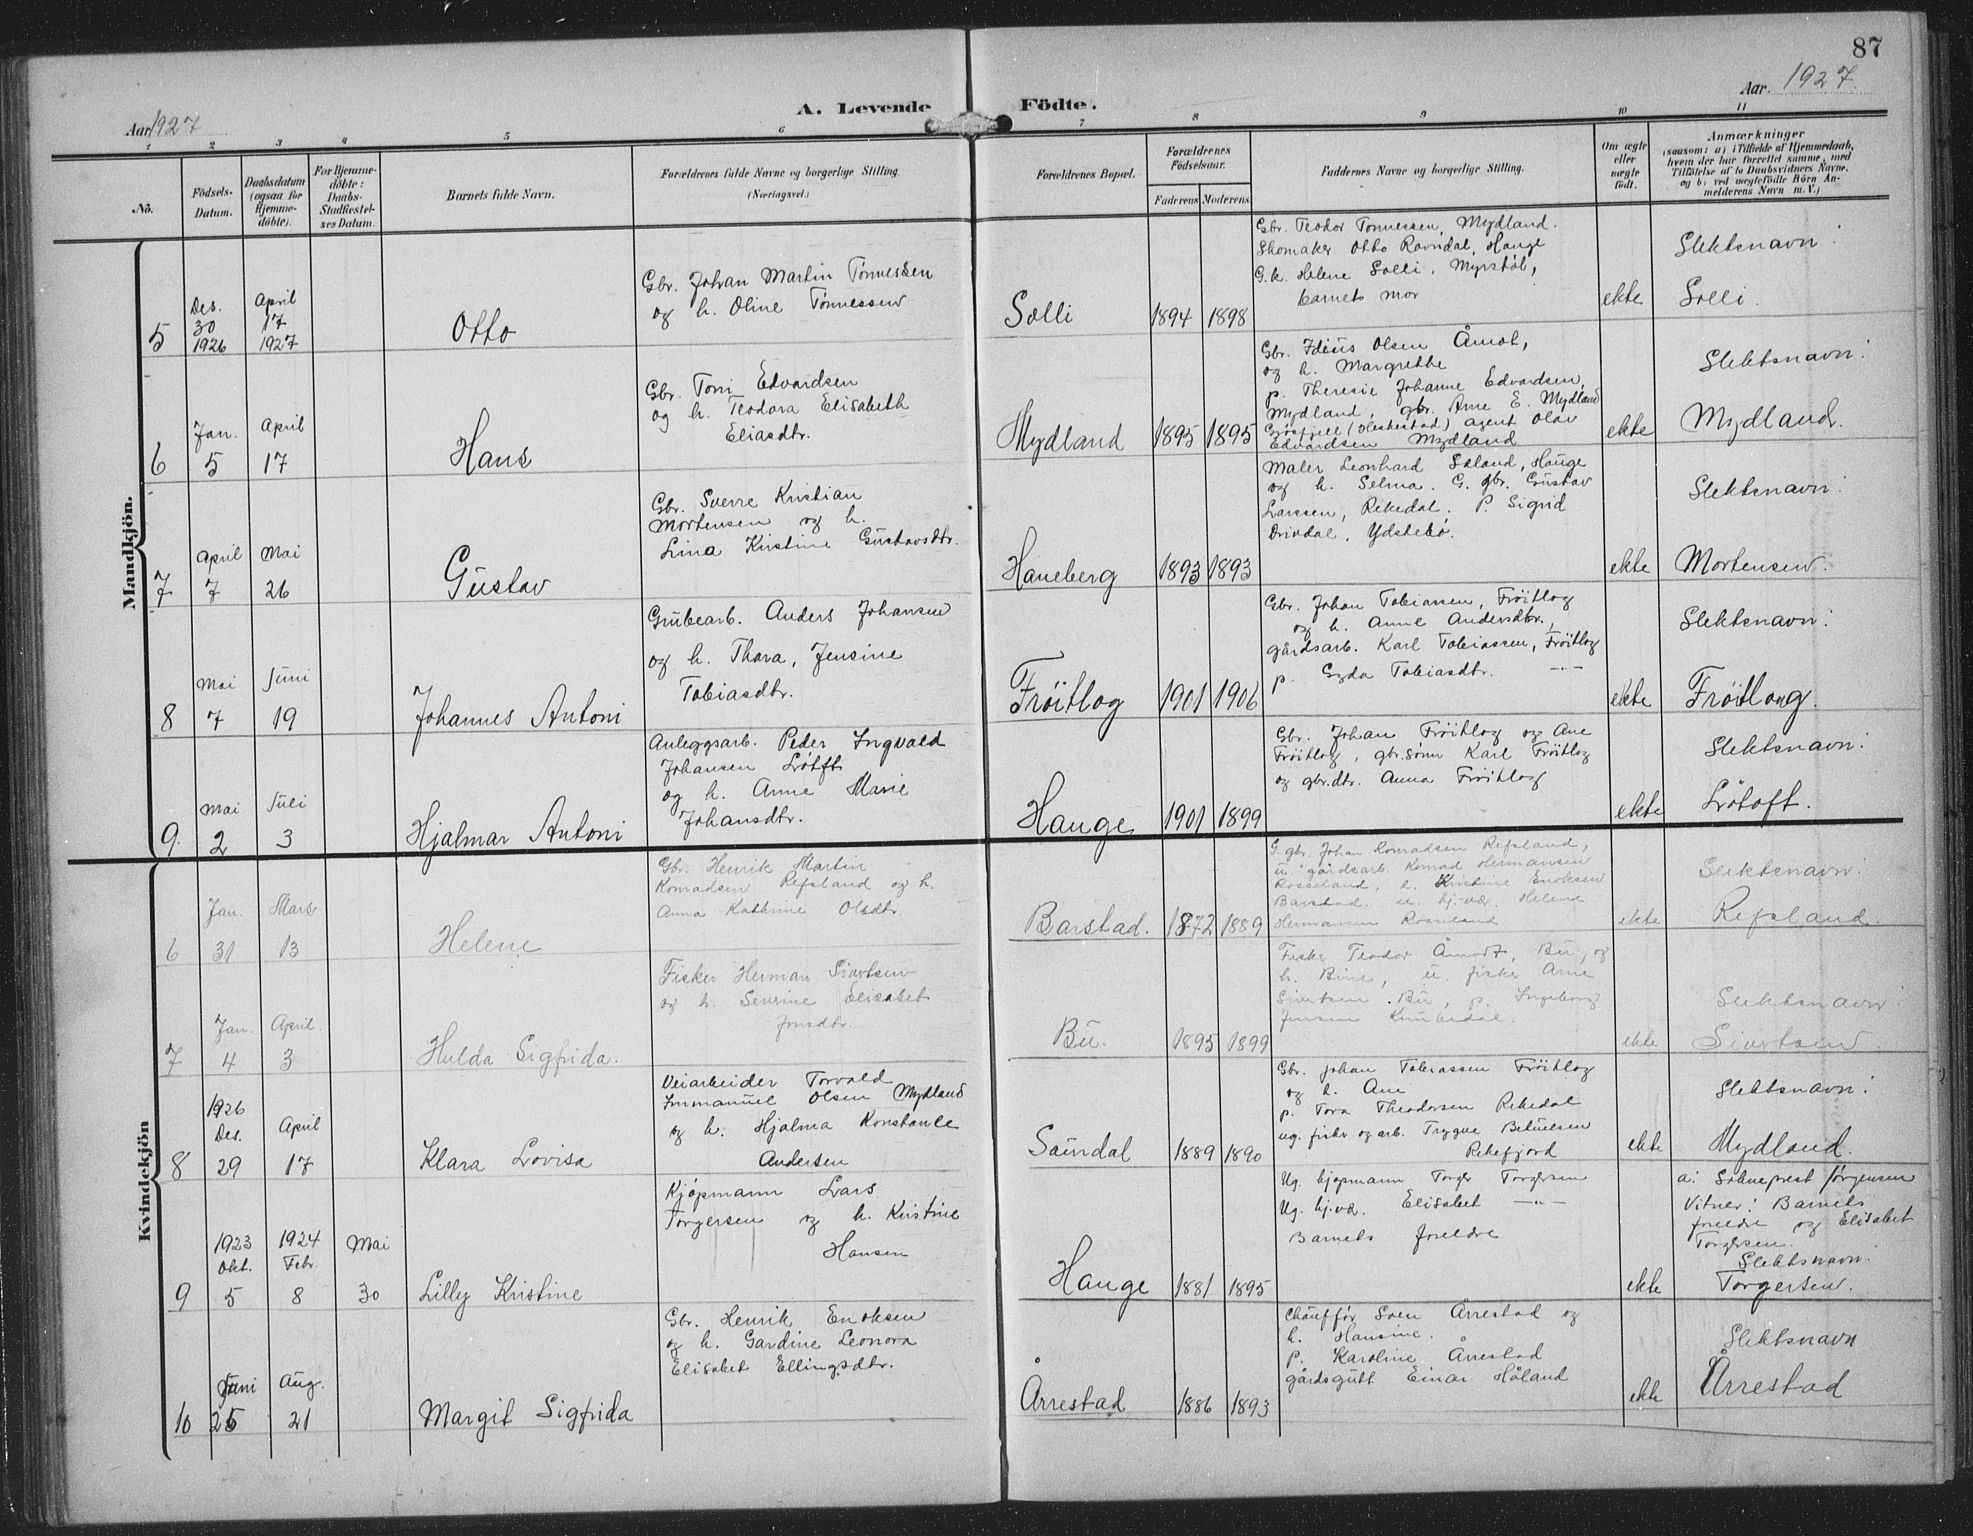 87
Aar 1927
A. Levende Födte.
Aar 1927
1 2 3 4 5 6 7 8 9 10 11
No.
Födsels-Datum.
Daabsdatum (ogsaa for Hjemmedöbte).
For Hjemmedöbte: Daabs-Stadfæstelses Datum.
Barnets fulde Navn.
Forældrenes fulde Navne og borgerlige Stilling (Næringsvei.)
Forældrenes Bopæl.
Forældrenes Födselsaar.
Faderens Moderens
Faddernes Navne og borgerlige Stilling.
Om ægte eller uægte födt.
Anmærkninger
(saasom: a) i Tilfælde af Hjemmedaab,
hvem der har forrettet samme, med
Tilföielse af to Daabsvidners Navne,
og b) ved uægtefödte Börn An-
melderens Navn m. V.)
Mandkjön.
5
Des. 30 1926
April 17 1927
Otto
Gbr. Johan Martin Tönnessen
og h. Oline Tönnessen
Solli
1894 1898
Gbr. Teodor Tönnessen, Mydland.
Skomaker Otto Ravndal, Hauge
G.k. Helene Solli, Myrstöl,
barnets mor
ekte
Slektsnavn:
Solli.
6
Jan. 5
April 17
Hans
Gbr. Toni Edvardsen
og h. Teodora Elisabeth
Eliasdtr.
Mydland
1895 1895
Gbr. Idius Olsen Åmot,
og h. Margrethe
p. Theresie Johanne Edvardsen,
Mydland, gbr. Arne E. Mydland
(Heskestad) agent Olav
Edvardsen Mydland
ekte
Slektsnavn:
Mydland.
7
April 7
Mai 26
Gustav
Gbr. Sverre Kristian
Mortensen og h.
Lina Kristine Gustavsdtr.
Haneberg
1893 1893
Maler Leonhard Søland, Hauge
og h. Selma. G. gbr. Gustav
Larssen, Rekedal. P. Sigrid
Drivdal, Ydstebö.
ekte
Slektsnavn:
Mortensen.
8
Mai 7
Juni 19
Johannes Antoni
Grubearb. Anders Johansen
og h. Thora, Jensine
Tobiasdtr.
Fröitlog
1901 1906
Gbr. Johan Tobiassen, Fröitlog
og h. Anne Andersdtr.,
gårdsarb. Karl Tobiassen, Fröitlog
p. Tobiasdtr. —"—
ekte
Slektsnavn:
Fröitlog.
9.
Mai 2
Juli 3
Hjalmar Antoni
Anleggsarb. Peder Ingvald
Johansen Lötoft
og h. Anne Marie
Johansdtr.
Hauge
1901 1899
Gbr. Johan Fröitlog og Ane
Fröitlog, gbr.sönn Karl Fröitlog
og gbr.dtr. Anna Fröitlog
ekte
Slektsnavn:
Lötoft.
Kvindekjön
6
Jan. 31
Mars 13
Helene
Gbr. Henrik Martin
Konradsen Refsland og h.
Anna Kathrine Olsdtr.
Barstad.
1872 1889
G. gbr. Johan Konradsen Refsland,
u. gårdsarb. Konrad Hermansen
Rosseland, e. Kristine Enoksen
Barstad. u. hj.vær. Helene
Hermansen Rosseland
ekte
Slektsnavn:
Refsland.
7
Jan. 4
April 3
Hulda Sigfrida.
Fisker Herman Sivertsen
og h. Severine Elisabet
Jonsdtr.
Bu.
1895 1899
Fisker Teodor Åmodt, Bu, og
h. Bine, u. fisker Arne
Sivertsen. Bu, p. Ingeborg
Jensen
ekte
Slektsnavn:
Sivertsen.
8
1926 Des. 29
April 17
Klara Lovisa
Veiarbeider Torvald
Immanuel Olsen Mydland
og h. Hjalma Konstance
Andersen
Saurdal
1889 1890
Gbr. Johan Tobiassen Fröitlog
og h. Ane
p. Tora Theodorsen Rekedal
ug. fisker og arb. Trygve Betuelsen
Rekefjord
ekte
Slektsnavn:
Mydland.
9
1923 Okt. 5
1924 Febr. 8
Mai 30
Lilly Kristine
Kjöpmann Lars
Torgersen og h. Kristine
Hansen
Hauge
1881 1895
Ug. kjöpmann Torger Torgersen
Ug. hj.vær. Elisabet —"—
Barnets foreldre
ekte
a: Sokneprest Jörgensen
Vitner: Barnets
foreldre og Elisabet
Torgersen.
Slektsnavn:
Torgersen.
10
Juni 25
Aug. 21
Margit Sigfrida
Gbr. Henrik Enoksen
og h. Gardine Leonora
Elisabet Ellingsdtr.
Årrestad
1886 1893
Chauffør Soren Årrestad og
h. Hansine.
p. Karoline Årrestad
gårdsgutt Einar Håland
ekte
Slektsnavn
Årrestad